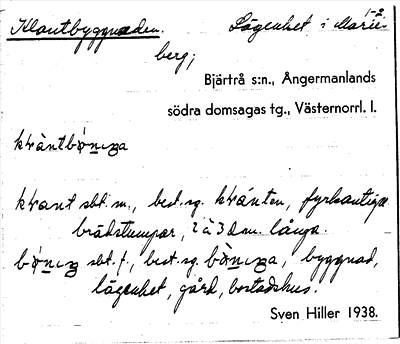 Klantbyggnaden. Lägenhet i Marie- 1-2.
berg;
Bjärtrå s:n., Ångermanlands
södra domsagas tg., Västernorrl. l.
sbt. m., best. sg. fyrkantiga
brädstumpar, 2 à 3 dm. långa.
sbt. f., best. sg. byggnad,
lägenhet, gård, bostadshus.
Sven Hiller 1938.